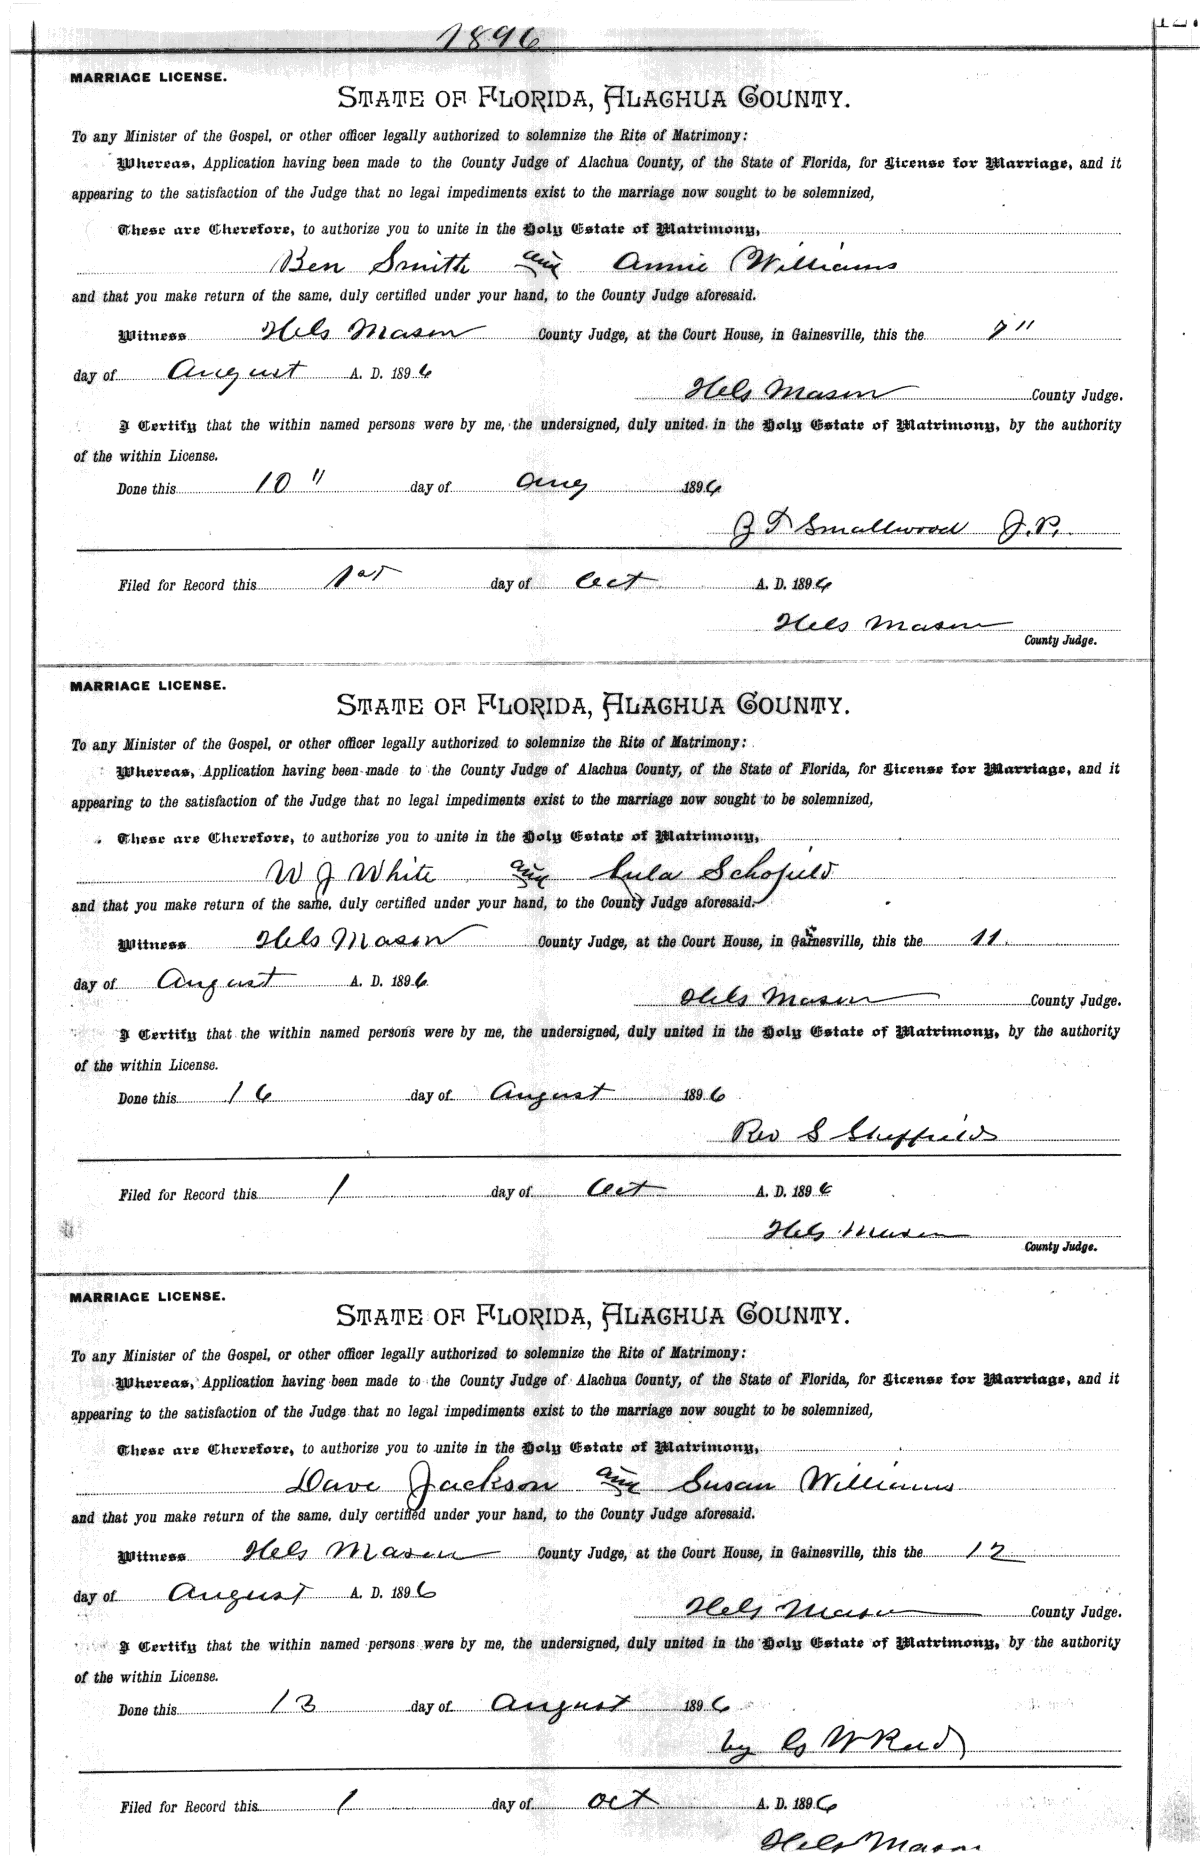 1896
MARRIAGE LICENSE.
STATE OF FLORIDA, ALACHUA COUNTY.
To any Minister of the Gospel, or other officer legally authorized to solemnize the Rite of Matrimony:
Whereas, Application having been made to the County Judge of Alachua County, of the State of Florida, for License for Marriage, and it
appearing to the satisfaction of the Judge that no legal impediments exist to the marriage now sought to be solemnized,
These are Therefore, to authorize you to unite in the Holy Estate of Matrimony,
Ben Smith and Annie Williams
and that you make return of the same, duly certified under your hand, to the County Judge aforesaid.
Witness Hels Mason County Judge, at the Court House, in Gainesville, this the 7"
day of August A. D. 1896
Hels Mason County Judge.
I Certify that the within named persons were by me, the undersigned, duly united in the Holy Estate of Matrimony, by the authority
of the within License.
Done this 10" day of Aug 1896
Z T Smallwood J.P.
Filed for Record this 1st day of Oct A. D. 1896
Hels Mason
County Judge.
MARRIAGE LICENSE.
STATE OF FLORIDA, ALACHUA COUNTY.
To any Minister of the Gospel, or other officer legally authorized to solemnize the Rite of Matrimony:
Whereas, Application having been made to the County Judge of Alachua County, of the State of Florida, for License for Marriage, and it
appearing to the satisfaction of the Judge that no legal impediments exist to the marriage now sought to be solemnized,
These are Therefore, to authorize you to unite in the Holy Estate of Matrimony,
W J White and Lula Schofield
and that you make return of the same, duly certified under your hand, to the County Judge aforesaid.
Witness Hels Mason County Judge, at the Court House, in Gainesville, this the 11.
day of August A. D. 1896
Hels Mason County Judge.
I Certify that the within named persons were by me, the undersigned, duly united in the Holy Estate of Matrimony, by the authority
of the within License.
Done this 16 day of August 1896
Rev S Sheffield
Filed for Record this 1 day of Oct A. D. 1896
Hels Mason
County Judge.
MARRIAGE LICENSE.
STATE OF FLORIDA, ALACHUA COUNTY.
To any Minister of the Gospel, or other officer legally authorized to solemnize the Rite of Matrimony:
Whereas, Application having been made to the County Judge of Alachua County, of the State of Florida, for License for Marriage, and it
appearing to the satisfaction of the Judge that no legal impediments exist to the marriage now sought to be solemnized,
These are Therefore, to authorize you to unite in the Holy Estate of Matrimony,
Dave Jackson and Susan Williams
and that you make return of the same, duly certified under your hand, to the County Judge aforesaid.
Witness Hels Mason County Judge, at the Court House, in Gainesville, this the 12
day of August A. D. 1896
Hels Mason County Judge.
I Certify that the within named persons were by me, the undersigned, duly united in the Holy Estate of Matrimony, by the authority
of the within License.
Done this 13 day of August 1896
by G W Reid
Filed for Record this 1 day of Oct A. D. 1896
Hels Mason